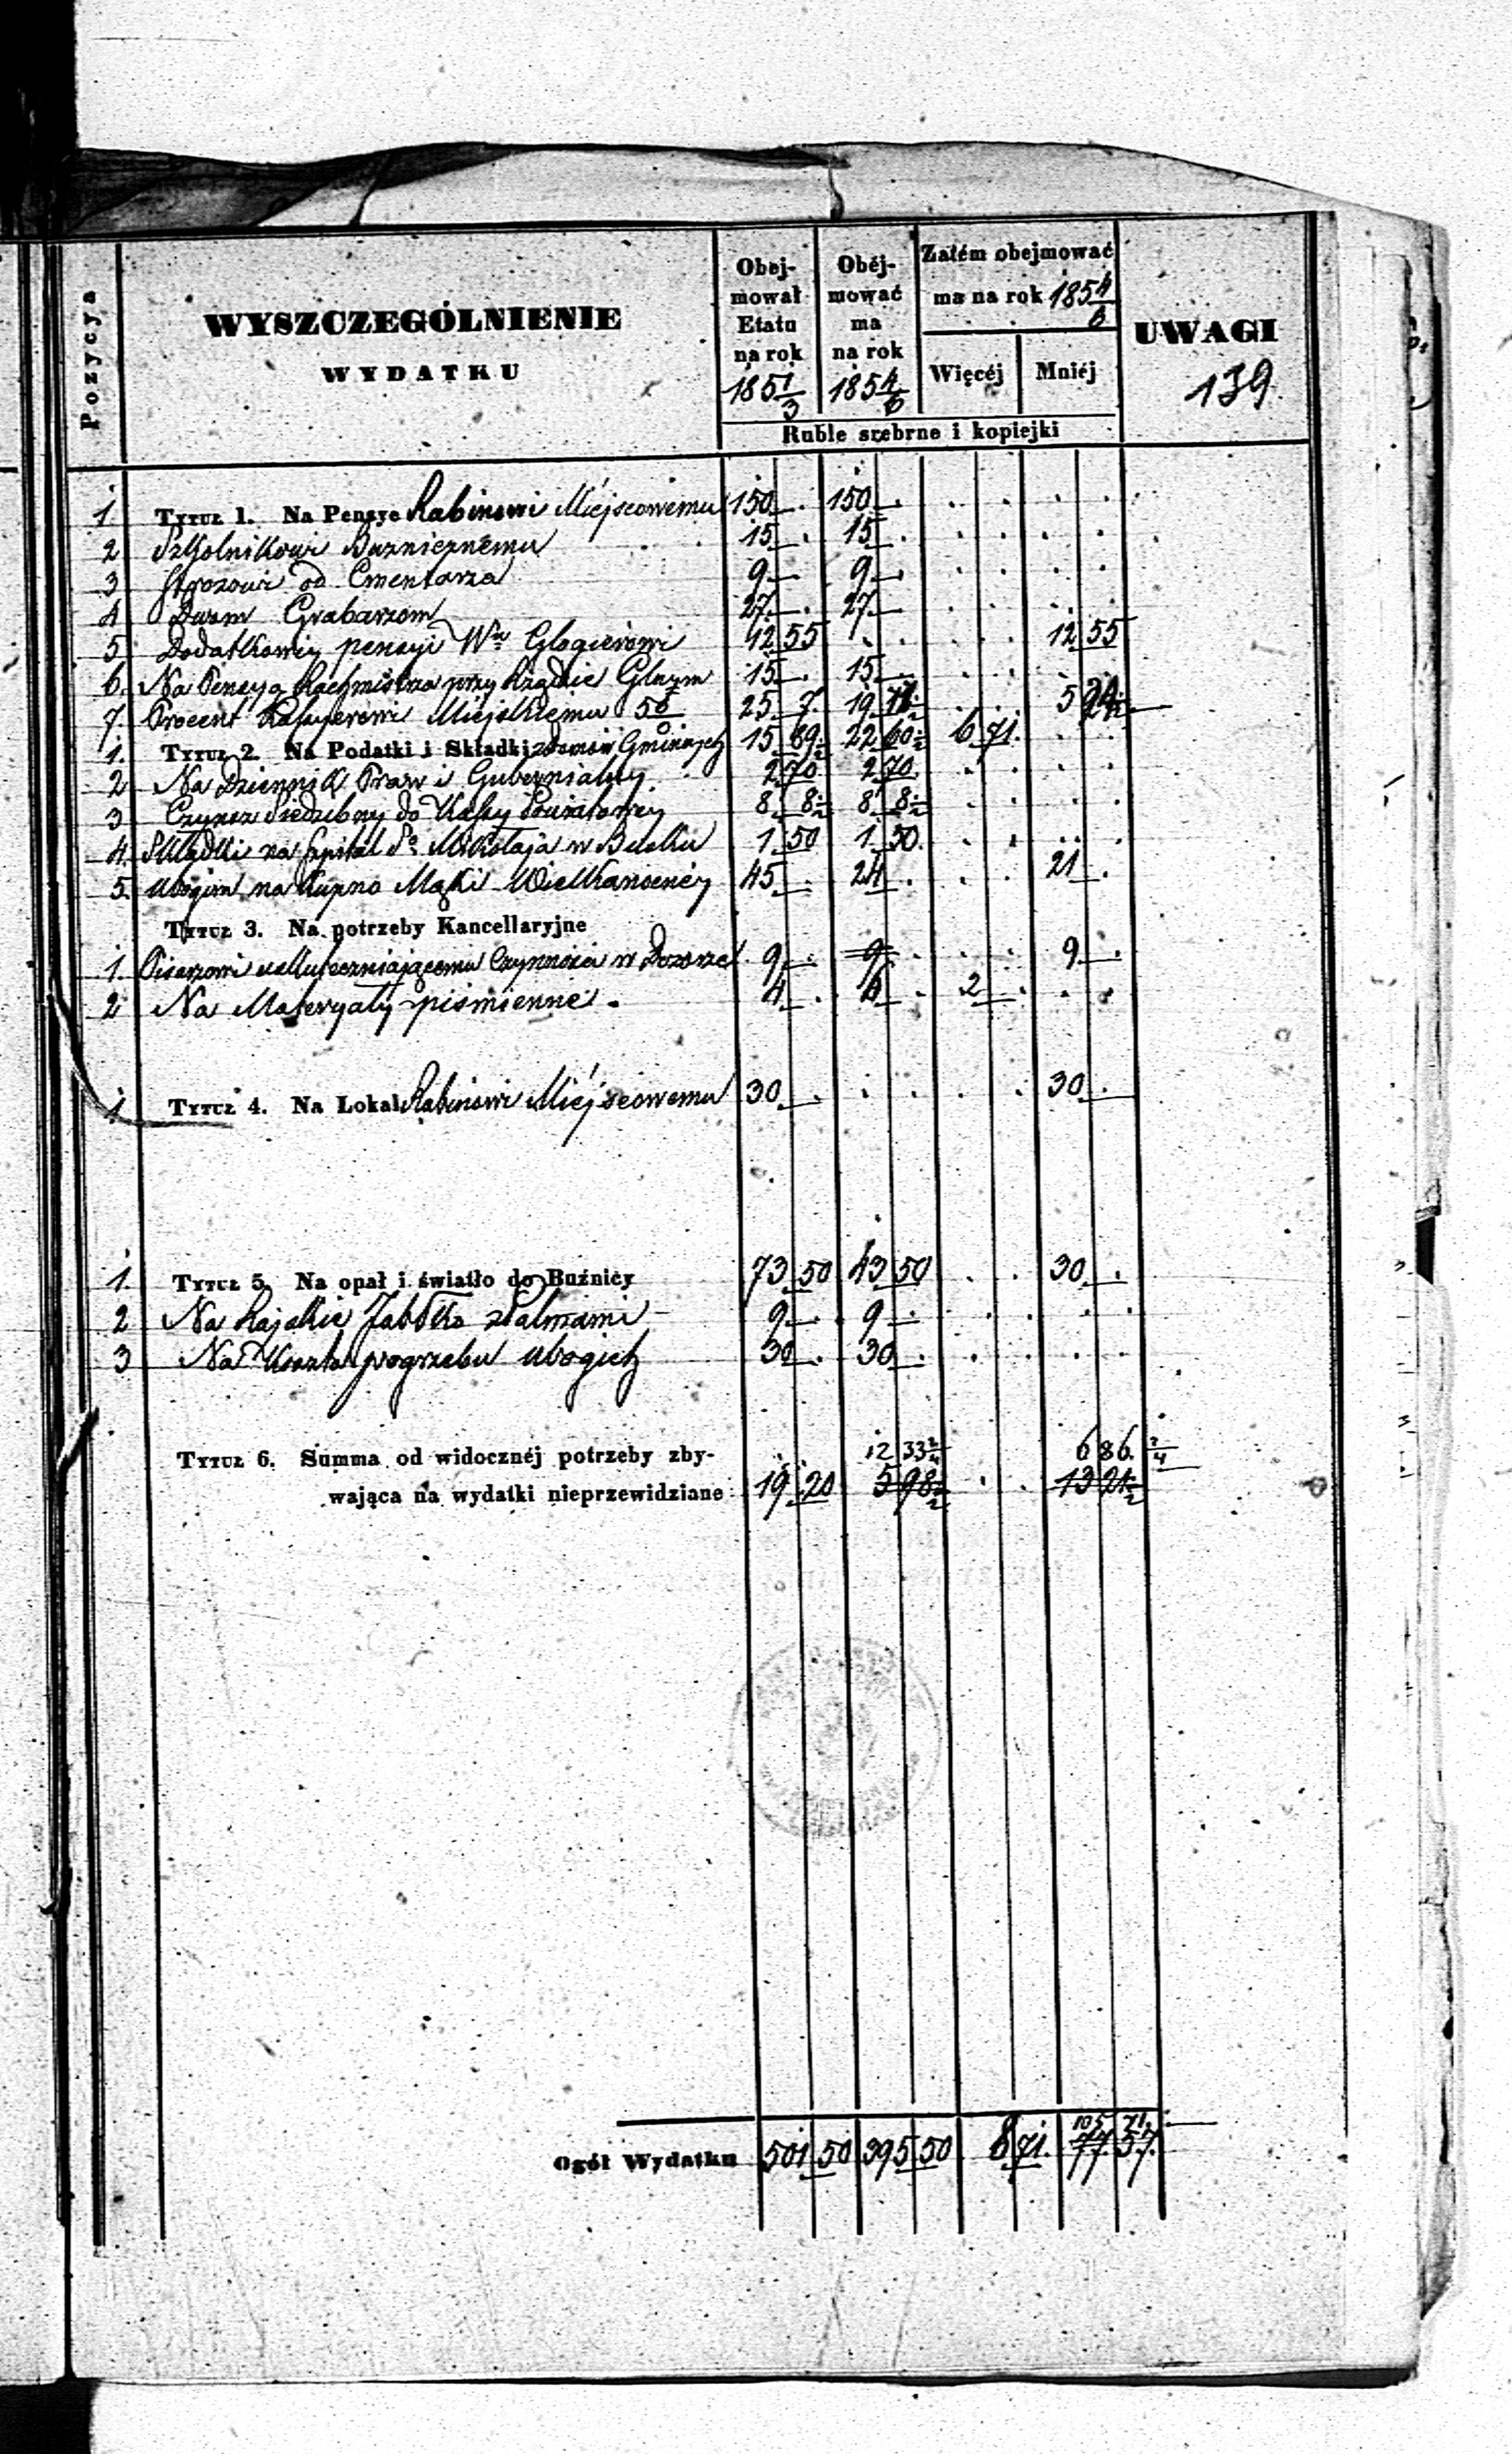 Pozycya
WYSZCZEGÓLNIENIE
WYDATKU
Obej-
mował
Etatu
na rok
1851/3
Obéj-
mować
ma
na rok
1854/6
Zatém obejmować
ma na rok 1854/6
Więcéj
Mniéj
UWAGI
139
Ruble srebrne i kopiejki
1 Tytuł 1. Na Pensye Rabinowi Miejscowemu 150 150
2 Szkolnikowi Buznicznemu 15 15
3 Strozowi od Cmentarza 9 9
4 Dwom Grabarzom 27 27
5 Dodatkowey pensyi Wu Glogierowi 42 55 12 55
6. Na Pensyą Rachmistrza przy Rządzie Glnym 15 15
7. Procent Kassyerowi Miejskiemu 25 7. 19 5
1. Tytuł 2. Na Podatki i Składki z domów Gminnych 15 89 22 60 6 71.
2 Na Dziennik Praw i Gubernialny 2 70 2 70
3 Czynsz Siedzibny do Kassy Powiatowey 8. 8 8 8
4. Składki na Szpital So Mikołaja w Busku 1 50 1 50.
5. Ubogim na Kupno Mąki Wielkanocnéy 45 24 21
Tytuł 3. Na potrzeby Kancellaryjne
1. Pisarzowi uskuteczniającemu Czynności w Dozorze 9 9 9
2 Na Materyały piśmienne. 4 6 2
1 Tytuł 4. Na Lokal Rabinowi Miéjscowemu 30 30
1. Tytuł 5. Na opał i światło do Buźnicy 73 50 43 50 30
2 Na Rajskie Jabłko z Palmami 9 9
3 Na Koszta pogrzebu ubogich 30 30
Tytuł 6. Summa od widocznéj potrzeby zby- 12 33 2/4 6 86. 2/4
wająca na wydatki nieprzewidziane 19 20 5 98 13 21
105 71.
Ogół Wydatku 501 50 395 50 8 71. 77 57.